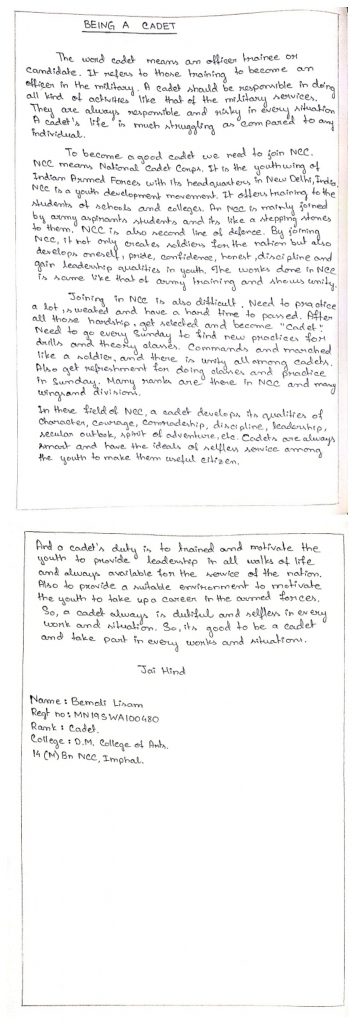 BEING A CADET
The word cadet means an officer trainee or
candidate. It refers to those training to become an
officer in the military. A cadet should be responsible in doing
all kind of activities like that of the military services.
They are always responsible and risky in every situation
A cadet's life is much struggling as compared to any
individual.
To become a good cadet we need to join NCC.
NCC means National Cadet Corps. It is the youth wing of
Indian Armed Forces with its headquarters in New Delhi, India.
NCC is a youth development movement. It offers training to the
students of schools and colleges. An NCC is mainly joined
by army aspirants students and its like a stepping stones
to them. NCC is also second line of defence. By joining
NCC, it not only creates soldiers for the nation but also
develops oneself, pride, confidence, honest, discipline and
gain leadership qualities in youth. The works done in NCC
is same like that of army training and shows unity.
Joining in NCC is also difficult. Need to practice
a lot, sweated and have a hard time to passed. After
all those hardship, get selected and become "Cadet".
Need to go every Sunday to find new practices for
drills and theory classes. Commands and marched
like a soldier, and there is unity all among cadets.
Also get refreshment for doing classes and practice
in Sunday. Many ranks are there in NCC and many
wings and divisions.
In these field of NCC, a cadet develops its qualities of
Character, courage, comradeship, discipline, leadership,
secular outlook, spirit of adventure, etc. Cadets are always
smart and have the ideals of selfless service among
the youth to make them useful citizen.
And a cadet's duty is to trained and motivate the
youth to provide leadership in all walks of life
and always available for the service of the nation.
Also to provide a suitable environment to motivate
the youth to take up a career in the armed forces.
So, a cadet always is dutiful and selfless in every
work and situation. So, its good to be a cadet
and take part in every works and situations.
Jai Hind
Name : Bemoli Lisam
Regt no : MN19SWA100480
Rank : Cadet.
College : D.M. College of Arts.
14 (M) Bn NCC, Imphal.